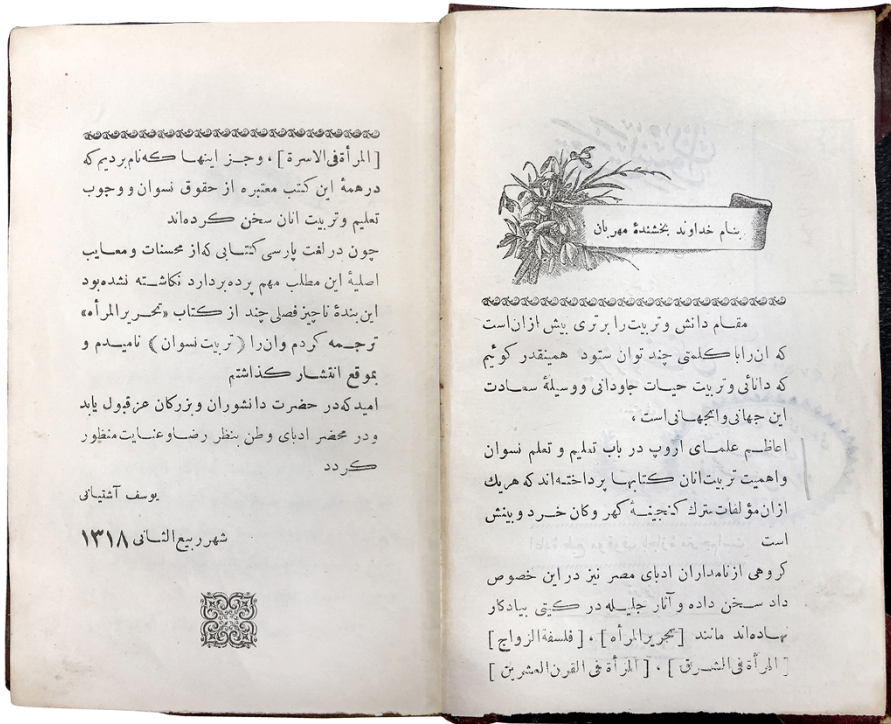 بنام خداوند بخشندهٔ مهربان
مقام دانش و تربیت را برتری بیش ازان است
که ان را با کلمتی چند توان ستود همینقدر کوئیم
که دانائی و تربیت حیات جاودانی و وسیلهٔ سعادت
این جهانی و انجهانی است ،
اعاظم علمای اروپ در باب تعلیم و تعلم نسوان
و اهمیت تربیت انان کتابها پرداخته‌اند که هریك
ازان مؤلفات سترك کنجینهٔ کهر و کان خرد و بینش
است
کروهی از نامداران ادبای مصر نیز در این خصوص
داد سخن داده و آثار جلیله در کیتی بیادکار
نهاده‌اند مانند [تحریر المرأه] ، [فلسفة الزواج]
[المرأة فی الشریق] ، [المرأة فی القرن العشرین]
[المرأة فی الاسرة] ، و جز اینها که نام بردیم که
در همهٔ این کتب معتبره از حقوق نسوان و وجوب
تعلیم و تربیت انان سخن کرده‌اند
چون در لغت پارسی کتابی که از محسنات و معایب
اصلیهٔ این مطلب مهم پرده بردارد نکاشته نشده بود
این بندهٔ ناچیز فصلی چند از کتاب «تحریر المرأه»
ترجمه کردم و ان را (تربیت نسوان) نامیدم و
بموقع انتشار کذاشتم
امید که در حضرت دانشوران و بزرکان عز قبول یابد
و در محضر ادبای وطن بنظر رضا و عنایت منظور
کردد
یوسف آشتیانی
شهر ربیع الثانی ۱۳۱۸